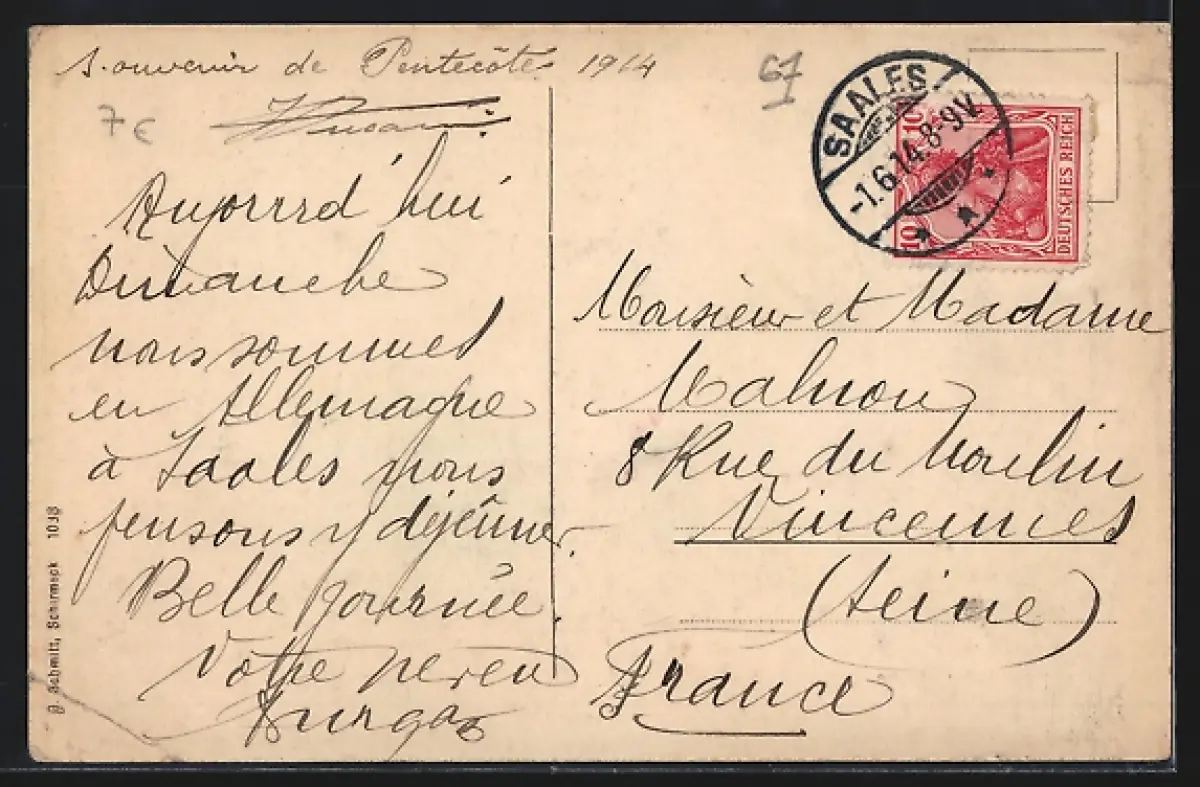 Souvenir de Pentecôte 1914
7 €
Aujourrd'hui
Dimanche
nous sommes
en Allemagne
à Saales nous
pensons y déjeûner.
Belle journée.
Votre neveu
67
SAALES
-1.6.14.8-9V.
10 10
DEUTSCHES REICH
Monsieur et Madame
8 Rue du Moulin
Vincennes
(Seine)
France
J. Schmitt, Schirmeck 1038